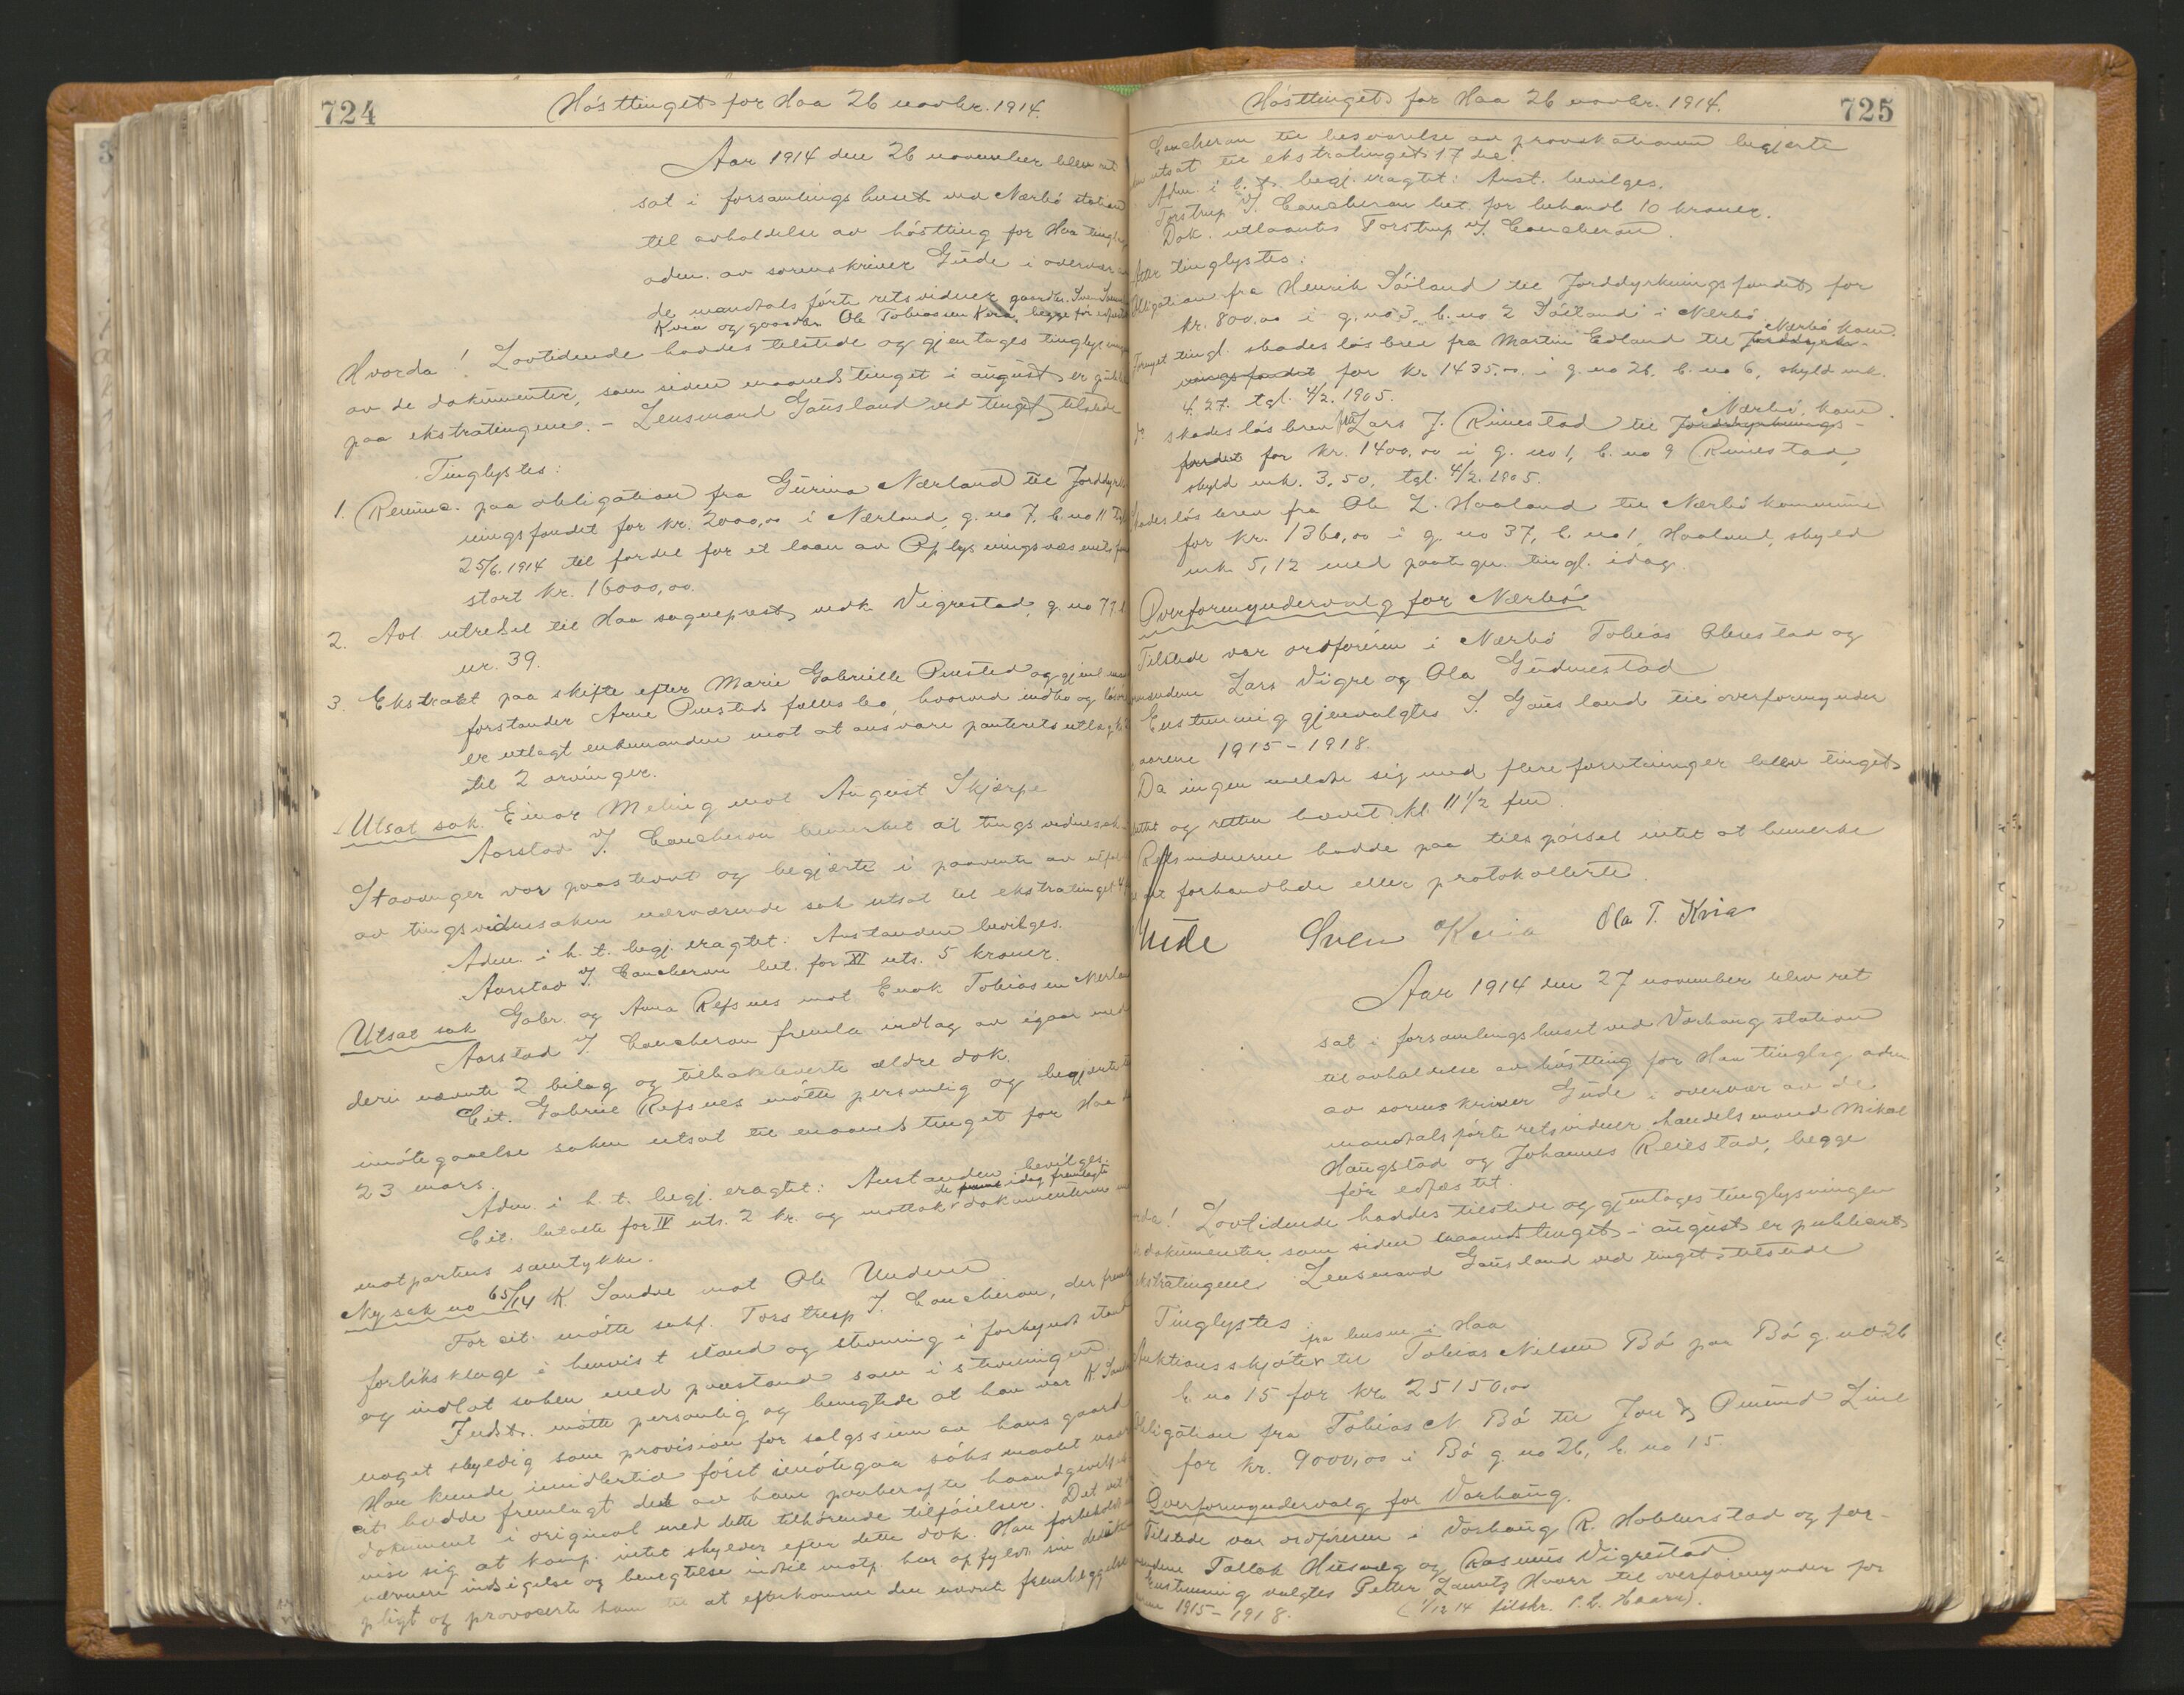 724
Høsttinget for Haa 26 novbr. 1914.
Aar 1914 den 26 november blev ret
sat i forsamlingshuset ved Nærbø station
til avholdelse av høstting for Haa tinglag
adm. av sorenskriver Gude i overvær av
de mandtalsførte retsvidner gaardbr. Sven
Kvia og gaardbr. Ole Tobiassen Kvia, begge før edfæstet
Hvorda! Lovtidende haddes tilstede og gjentages tinglysningen
av de dokumenter, som siden maanedstinget i august er
paa ekstratingene. - Lensmand Gausland ved tinget tilstede
Tinglystes:
1. Reunc. paa obligation fra Gurine Nærland til Jorddyrk-
ningsfondet for kr. 2000,00 i Nærland, g. no 7, b. no 11
25/6. 1914 til fordel for et laan av Oplysningsvæsenets fond
stort kr. 16000,00.
2. Avl. utredsel til Haa sogneprest vedk. Vigrestad, g. no 77
nr. 39.
3. Ekstrakt paa skifte efter Marie Gabrielle og gjenl.
forstander Arne fællesbo, hvorved indbo og løsøre
er utlagt enkemanden mot at ansvare panteretsutlæg
til 2 arvinger.
Utsat sak Einar Meling mot August Skjærpe
Aarstad v/ Caucheron bemerket at tingsvidnesak
Stavanger var paastevnt og begjærte i paavente av utfaldet
av tingsvidnesaken nærværende sak utsat til ekstratinget
Adm. i h. t. begj. eragtet: Anstanden bevilges.
Aarstad v/ Caucheron bet. for XI uts. 5 kroner.
Utsat sak Gabr. og Anna Refsnes mot Enok Tobiasen Nærland
Aarstad v/ Caucheron fremla indlag av igaar med
deri nævnte 2 bilag og tilbakeleverte ældre dok.
Cit. Gabriel Refsnes møtte personlig og begjærte til
imøtegaaelse saken utsat til maanedstinget for Haa
23 mars.
Adm. i h. t. begj. eragtet: Anstanden bevilges.
de idag fremlagte
Cit. betalte for IV uts. 2 kr. og mottok dokumenterne
motpartens samtykke.
Ny sak no 65/14 K. Sandve mot Ole Undem
For cit. møtte sakf. Torstrup v/ Caucheron, der fremla
forliksklage i henvist stand og stevning i forkyndt stand
og indlot saken med paastand som i stevningen.
Indst. møtte personlig og benegtede at han var K. Sandve
noget skyldig som provision for salgssum av hans gaard
Han kunde imidlertid først imøtegaa søksmaalet naar
cit. hadde fremlagt det av ham paaberopte haandgivelses
dokument i original med dette tilhørende tilføielser. Det vil
vise sig at komp. intet skylder efter dette dok. Han forbeholdt
nærmere indsigelse og benegtelse indtil motp. har opfyldt sin
pligt og provocerte ham til at efterkomme den nævnte fremleggelse
Høsttinget for Haa 26 novbr. 1914.
725
Caucheron til besvarelse av provokationen begjærte
utsat til ekstratinget 17 de.
Adm. i h. t. begj. eragtet: Anst. bevilges.
Torstrup v/ Caucheron bet. for behandl 10 kroner.
Dok. utlaantes Torstrup v/ Caucheron.
tinglystes:
Obligation fra Henrik Søiland til Jorddyrkningsfondet for
kr. 800,00 i g. no 3, b. no 2 Søiland i Nærbø
Nærbø kom.
Fornyet tingl. skadesløsbrev fra Martin Edland til Jorddyrk-
ningsfondet for kr. 1435,00 i g. no 26, b. no 6, skyld mk.
4,27. tgl. 4/2. 1905.
Nærbø kom.
skadesløsbrev fra Lars J. Rimestad til Jorddyrknings-
fondet for kr. 1400,00 i g. no 1, b. no 9 Rimestad,
skyld mk. 3,50, tgl. 4/2. 1905.
Skadesløsbrev fra Ole L. Haaland til Nærbø kommune
for kr. 1360,00 i g. no 37, b. no 1, Haaland, skyld
mk. 5,12 med paategn. tingl. idag.
Overformyndervalg for Nærbø
Tilstede var ordføreren i Nærbø Tobias Obrestad og
Lars Vigre og Ola Gudmestad
Enstemmig gjenvalgtes S. Gausland til overformynder
aarene 1915-1918.
Da ingen meldte sig med flere forretninger blev tinget
og retten hævet kl. 11 1/2 fm.
Retsvidnerne hadde paa tilspørsel intet at bemerke
forhandlede eller protokollerte.
Gude Sven Kvia Ola T. Kvia
Aar 1914 den 27 november blev ret
sat i forsamlingshuset ved Varhaug station
til avholdelse av høstting for Haa tinglag adm.
av sorenskriver Gude i overvær av de
mandtalsførte retsvidner handelsmand Mikal
Haugstad og Johannes Reiestad, begge
før edfæstet.
Lovtidende haddes tilstede og gjentages tinglysningen
dokumenter som siden maanedstinget i august er publicert
ekstratingene. Lensmand Gausland ved tinget tilstede
Tinglystes
fra lensm. i Haa
Auktionsskjøte til Tobias Nilsen Bø paa Bø g. no 26
b. no 15 for kr. 25150,00
Obligation fra Tobias N. Bø til Jon & Omund Line
for kr. 9000,00 i Bø g. no 26, b. no 15.
Overformyndervalg for Varhaug.
Tilstede var ordføreren i Varhaug R. Hobberstad og for-
Tollak Husvæg og Rasmus Vigrestad
Enstemmig valgtes Petter Lauritz Haarr til overformynder for
1915-1918. (1/12 14 tilskr. P. L. Haarr).